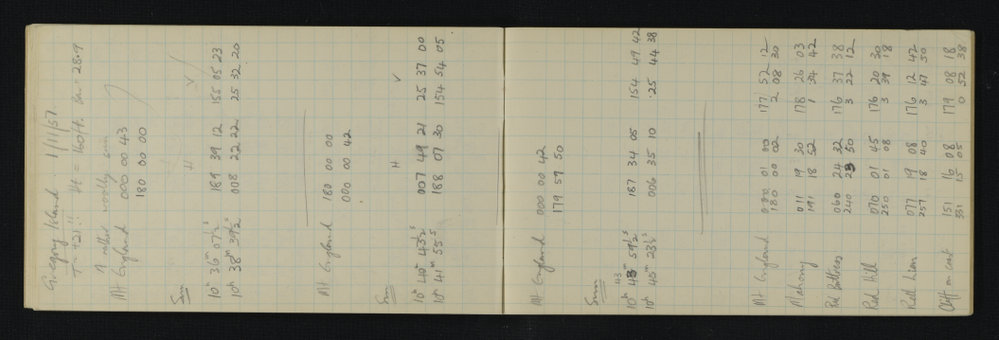 Gregory Island. 1/11/57.
T = +21° Ht = 160ft. Bar = 28.9
A rather woolly sun
Mt England 000 00 43
180 00 00
Sun H V
10h 36m 07½s 189 39 12 155 05 23
10h 38m 39½s 008 22 22 25 32 20
Mt England 180 00 00
000 00 42
Sun H V
10h 40m 43½s 007 49 21 25 37 00
10h 41m 55s 188 07 30 154 54 05
Mt England 000 00 42
179 59 50
Sun
10h 43m 59½s 187 34 05 154 49 42
10h 45m 23½s 006 35 10 25 44 38
Mt England 000 01 00 177 52 12
180 00 02 2 08 30
Mahony 011 19 30 178 26 03
191 18 52 1 34 42
Red Buttress 060 24 32 176 37 38
240 23 50 3 22 12
Red Hill 070 01 45 176 20 30
250 01 08 3 39 18
Red Lion 077 19 08 176 12 42
257 18 40 3 47 30
Cliff on coast 151 16 08 179 08 18
331 15 05 0 52 38